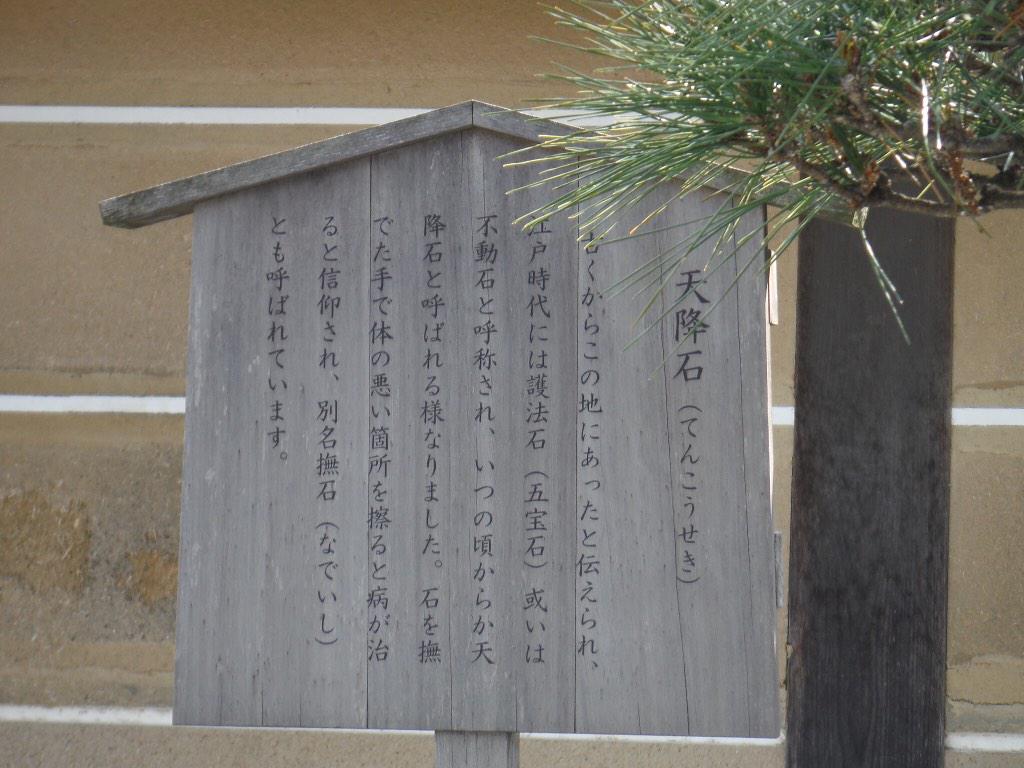 天降石（てんこうせき）
古くからこの地にあったと伝えられ、
江戸時代には護法石（五宝石）或いは
不動石と呼称され、いつの頃からか天
降石と呼ばれる様なりました。石を撫
でた手で体の悪い箇所を擦ると病が治
ると信仰され、別名撫石（なでいし）
とも呼ばれています。